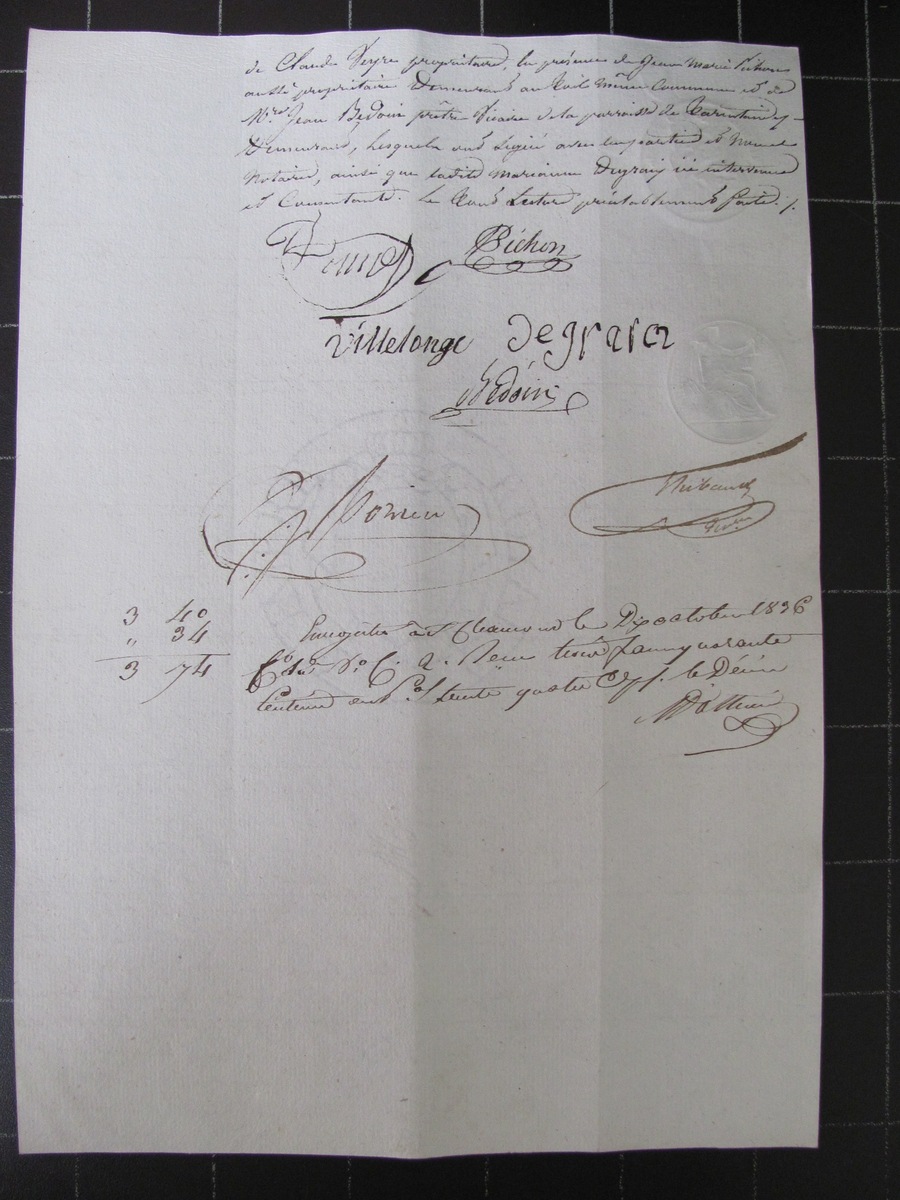 de Claude Veyre propriétaire, la présence de Jean Marie Pichon
aussi propriétaire Demeurant au même Commune et de
Mre Jean Bedoin prêtre Vicaire de la parroisse de Tarentaize
Demeurant, lesquels ont Signé avec les parties et Nous
Notaire, ainsi que ladite Marianne Degraix ici intervenue
et Consentante. Le tout Lecture préalablement faite ./.
Pichon
villelonge Degraix
Bedoin
Thibaud
3 40
" 34
3 74
Enregistré à St Chamond le Dix octobre 1836
fo Vo C. 2. Reçu trois francs quarante
Centimes et pr Subv. trente quatre c. le Décime